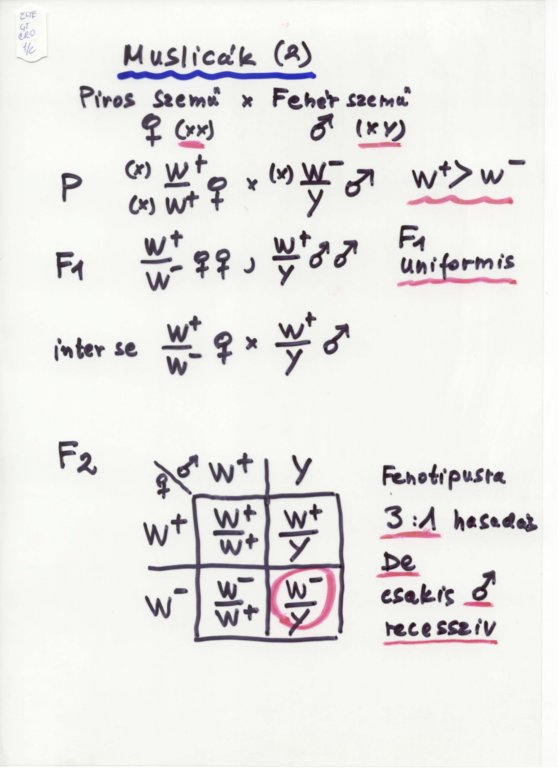 Muslicák (2)
Piros szemű × Fehér szemű
♀ (xx) ♂ (xy)
P (x) w⁺ / (x) w⁺ ♀ × (x) w⁻ / y ♂ w⁺ > w⁻
F1 w⁺ / w⁻ ♀♀, w⁺ / y ♂♂ F1 uniformis
inter se w⁺ / w⁻ ♀ × w⁺ / y ♂
F2
♀ \ ♂ w⁺ y
w⁺ w⁺ / w⁺ w⁺ / y
w⁻ w⁻ / w⁺ w⁻ / y
Fenotipusra
3:1 hasadás
De
csakis ♂
recessziv